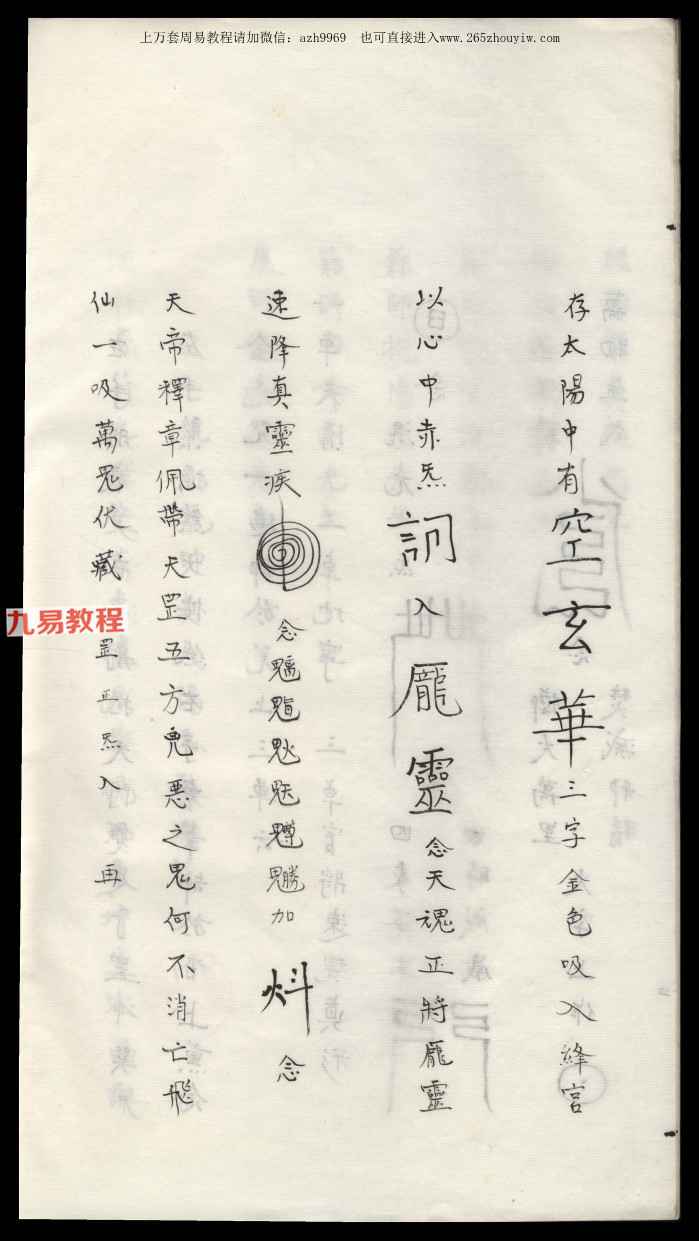 上万套周易教程请加微信：azh9969　也可直接进入www.265zhouyiw.com
存太陽中有空玄華三字金色吸入絳宮
以心中赤炁 入龎靈念天魂正將龎靈
速降真靈疾 念魑 加 念
天帝釋章佩帶天罡五方兇惡之鬼何不消亡飛
仙一吸萬鬼伏藏 罡正炁入 再
九易教程